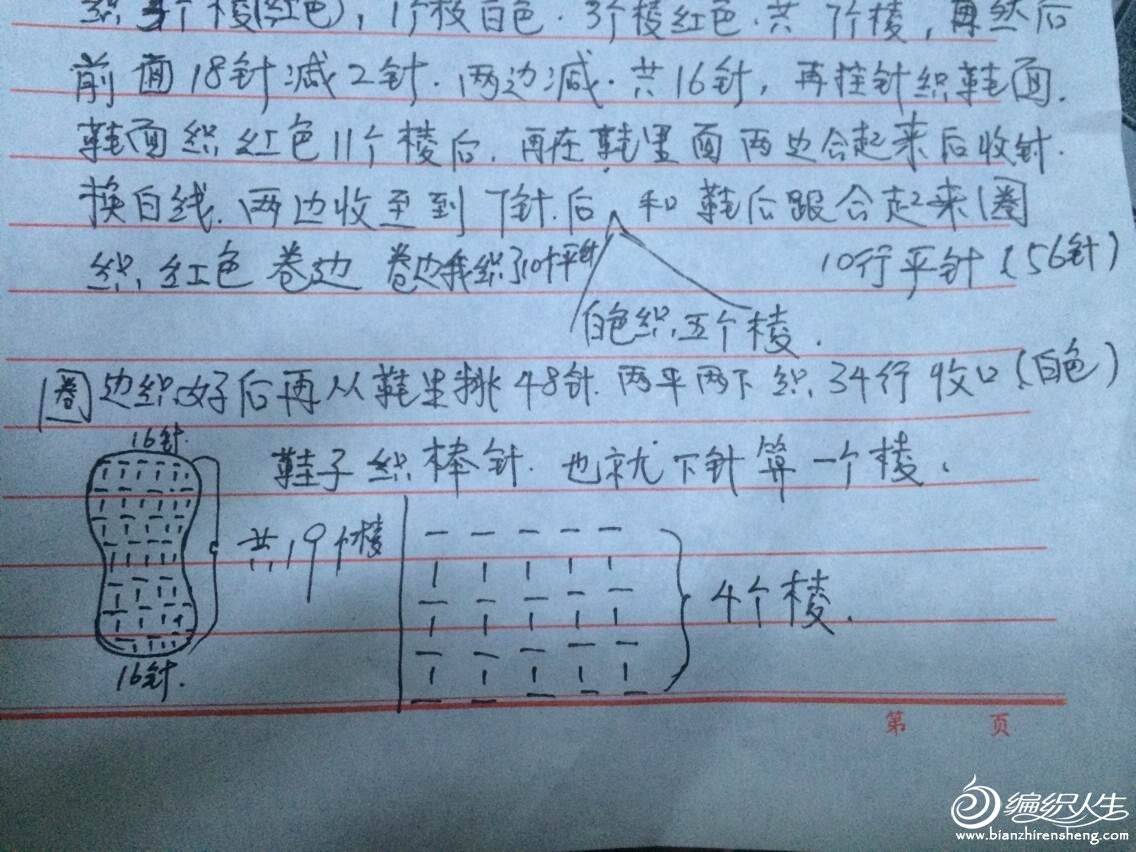 织3个棱(红色),1个棱白色.3个棱红色.共7个棱,再然后
前面18针减2针.两边减.共16针,再挂针织鞋面.
鞋面织红色11个棱后.再在鞋里面两边合起来后收针.
换白线.两边收至到7针.后 和鞋后跟合起来圈
织.红色卷边 卷边我织了10行平针 10行平针(56针)
白色织.五个棱.
卷边织好后再从鞋里挑48针.两平两下织.34行收口(白色)
16针.
鞋子织棒针.也就下针算一个棱.
共19个棱
4个棱.
16针.
第 页
编织人生
www.bianzhirensheng.com